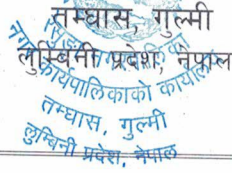 तम्घास, गुल्मी
लुम्बिनी प्रदेश, नेपाल
नगर कार्यपालिकाको कार्यालय
तम्घास, गुल्मी
लुम्बिनी प्रदेश, नेपाल